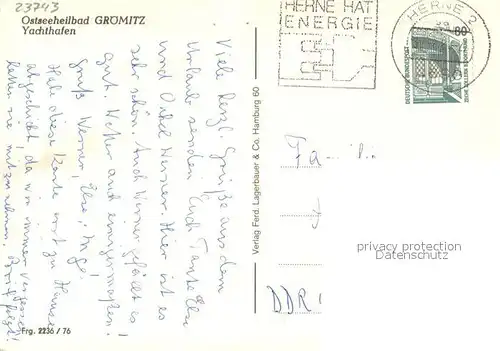 23743
Ostseeheilbad GRÖMITZ
Yachthafen
Viele herzl. Grüße aus dem
Urlaub senden Euch Tante Else
und Onkel Werner. Hier ist es
sehr schön. Auch Werner gefällt es
gut. Wetter auch einigermaßen!
Gruß Werner, Else,
Hab diese Karte erst zu Hause
abgeschickt, da wir immer vergessen
hatten sie mitzunehmen. Brief folgt!
Frg. 2236 / 76
Verlag Ferd. Lagerbauer & Co. Hamburg 60
HERNE HAT
ENERGIE
HERNE 2
80
DEUTSCHE BUNDESPOST
Fa
DDR
privacy protection
Datenschutz